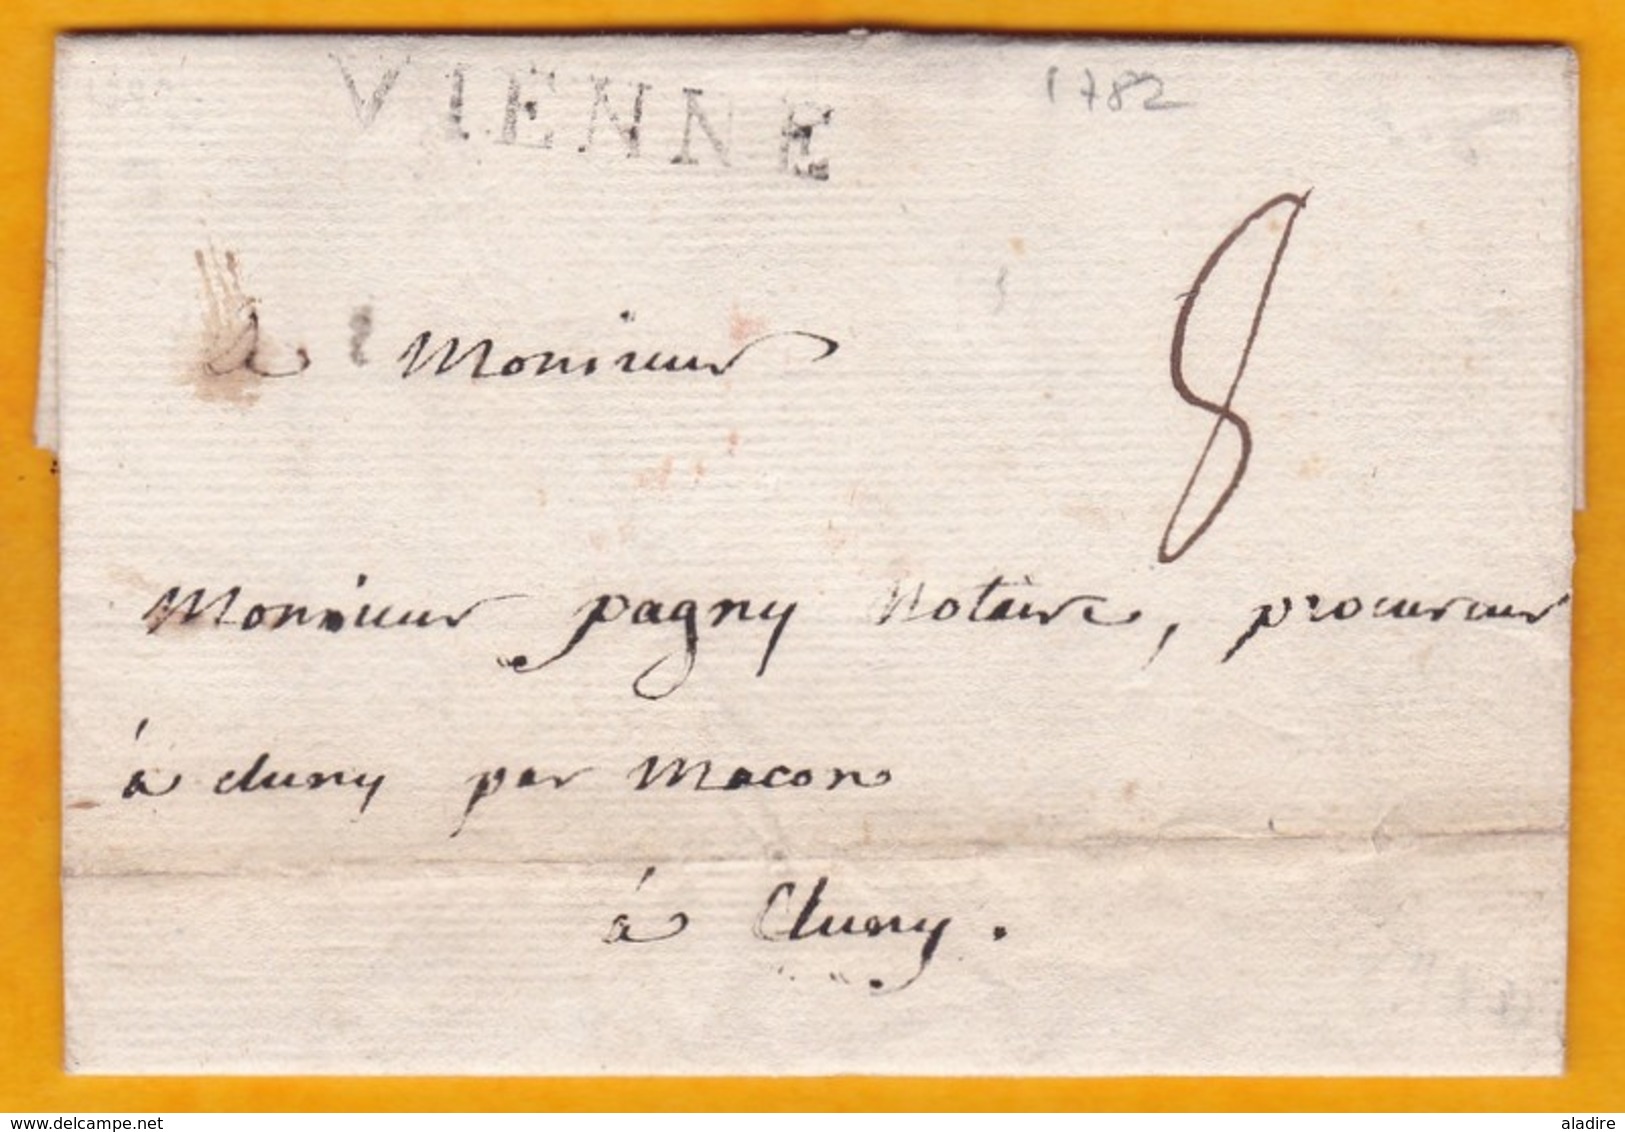 VIENNE
1782
8
a Monsieur
Monsieur pagny Notaire, procureur
á cluny par Macon
á Cluny.
delcampe.net
aladire